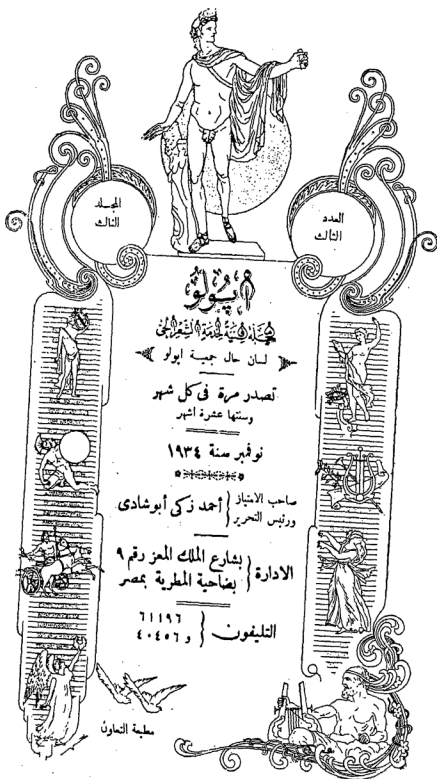 المجلد
الثالث
العدد
الثالث
أپولو
مجلة فنية لخدمة الشعر الحي
لسان حال جمعية ابولو
تصدر مرة فى كل شهر
وسنتها عشرة اشهر
نوفمبر سنة ١٩٣٤
صاحب الامتياز
ورئيس التحرير
أحمد زكى أبوشادى
الادارة
بشارع الملك المعز رقم ٩
بضاحية المطرية بمصر
التليفون
٦١١٩٦
و ٤٠٤٥٦
مطبعة التعاون